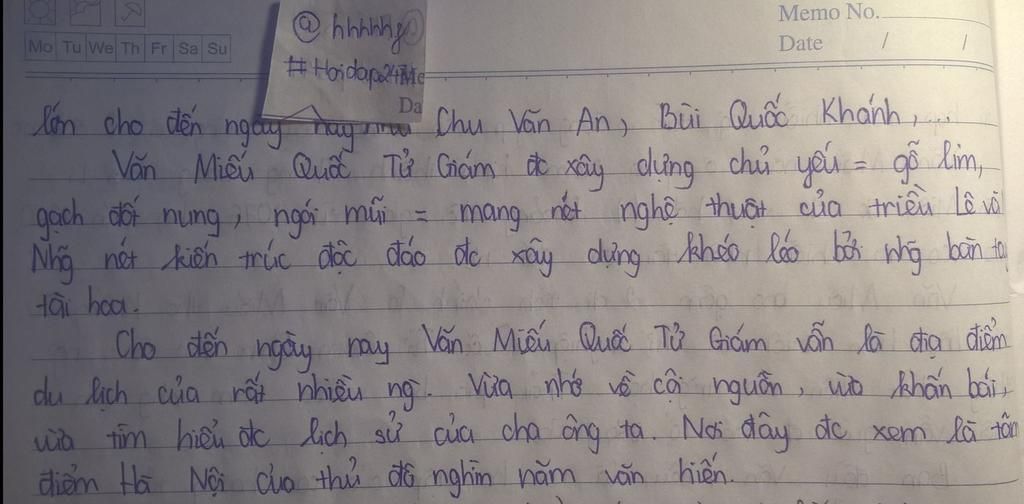 Memo No.
Date / /
Mo Tu We Th Fr Sa Su
@ hhhhhg
#Hoidap247
Me
Da
lớn cho đến ngày nay như Chu Văn An, Bùi Quốc Khánh,...
Văn Miếu Quốc Tử Giám đc xây dựng chủ yếu = gỗ lim,
gạch đốt nung, ngói mũi = mang nét nghệ thuật của triều Lê và
Nhg nét kiến trúc độc đáo đc xây dựng khéo léo bởi nhg bàn ta
tài hoa.
Cho đến ngày nay Văn Miếu Quốc Tử Giám vẫn là địa điểm
du lịch của rất nhiều ng. Vừa nhớ về cội nguồn, vừa khấn bái,
vừa tìm hiểu đc lịch sử của cha ông ta. Nơi đây đc xem là tâm
điểm Hà Nội của thủ đô nghìn năm văn hiến.